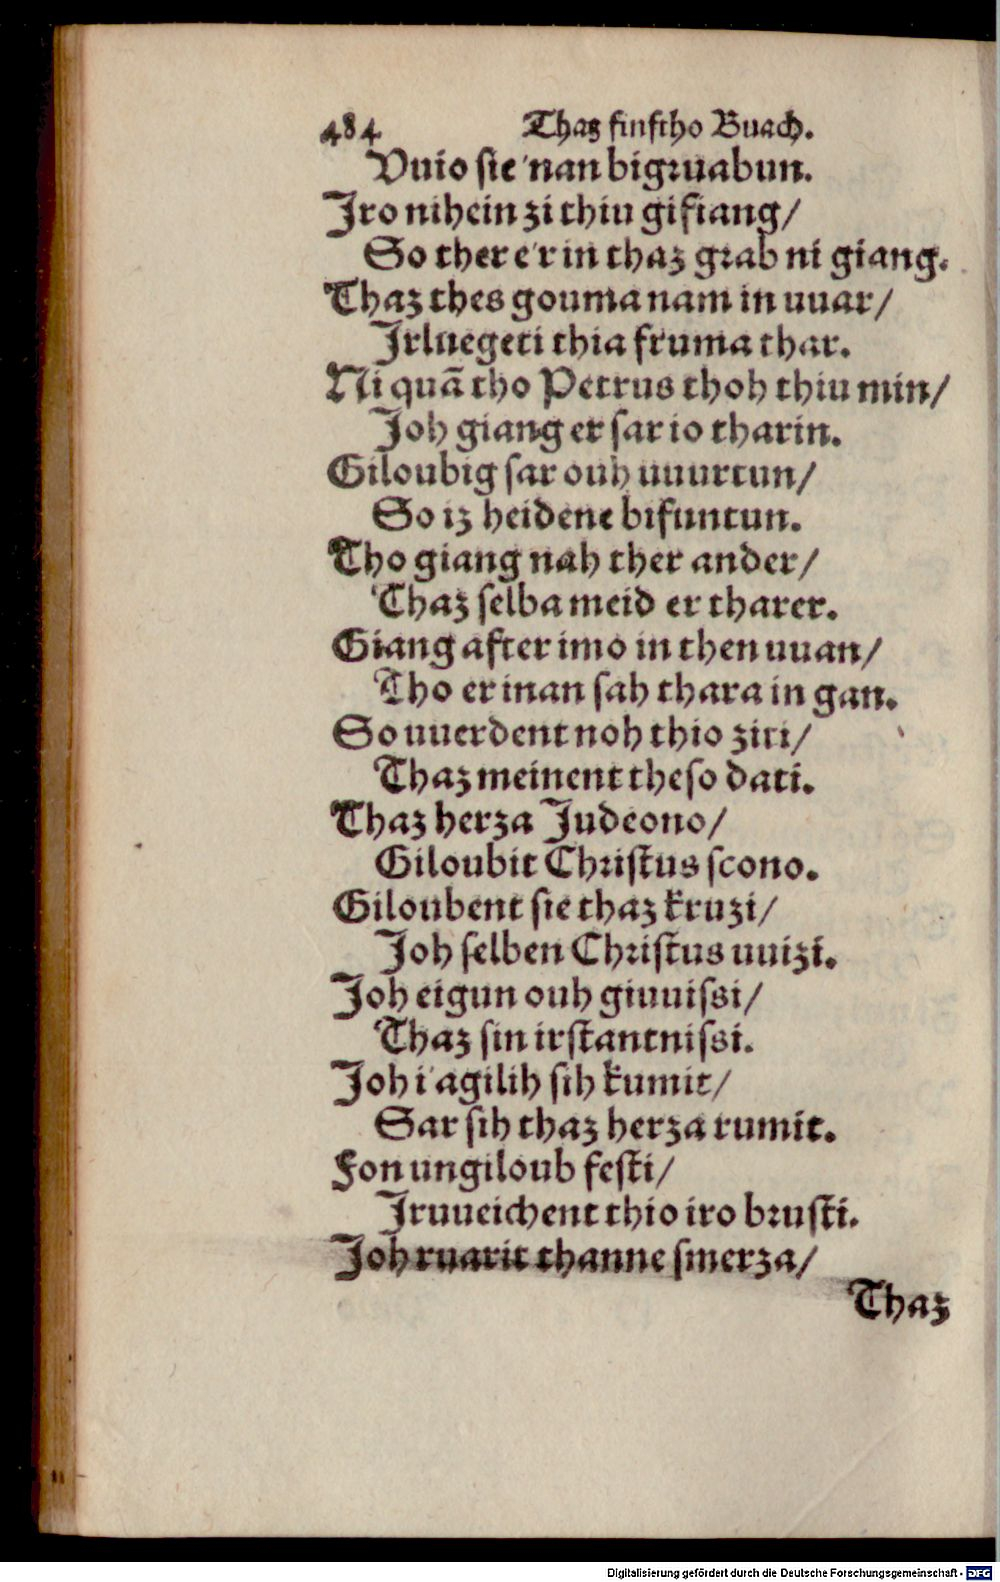 484 Thaz finftho Buach.
Vuio sie 'nan bigruabun.
Jro nihein zi thiu gifiang/
So ther e'r in thaz grab ni giang.
Thaz thes gouma nam in uuar/
Jrluegeti thia fruma thar.
Ni quā tho Petrus thoh thiu min/
Joh giang er sar io tharin.
Giloubig sar ouh uuurtun/
So iz heidene bifuntun.
Tho giang nah ther ander/
Thaz selba meid er tharer.
Giang after imo in then uuan/
Tho er inan sah thara in gan.
So uuerdent noh thio ziti/
Thaz meinent theso dati.
Thaz herza Judeono/
Giloubit Christus scono.
Giloubent sie thaz kruzi/
Joh selben Christus uuizi.
Joh eigun ouh giuuissi/
Thaz sin irstantnissi.
Joh i'agilih sih kumit/
Sar sih thaz herza rumit.
Fon ungiloub festi/
Jruueichent thio iro brusti.
Joh ruarit thanne smerza/
Thaz
Digitalisierung gefördert durch die Deutsche Forschungsgemeinschaft - DFG